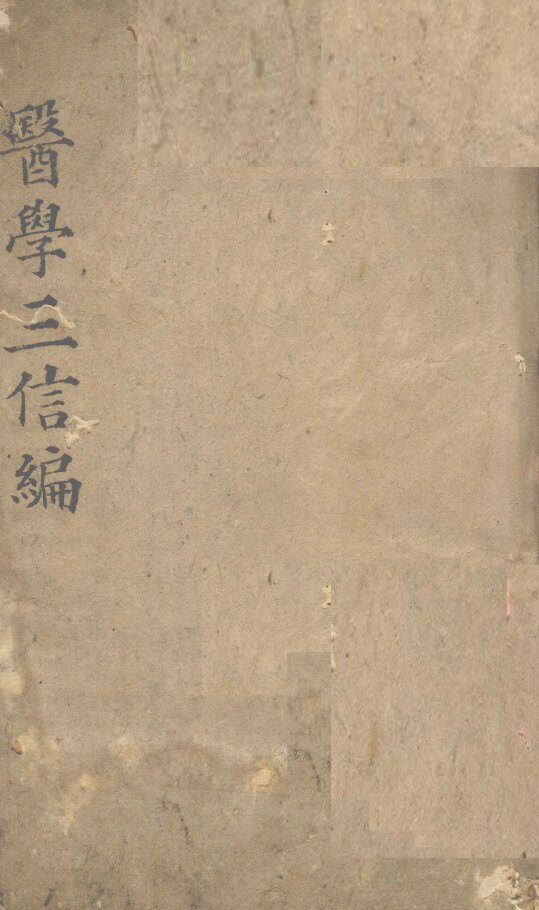 醫學三信編